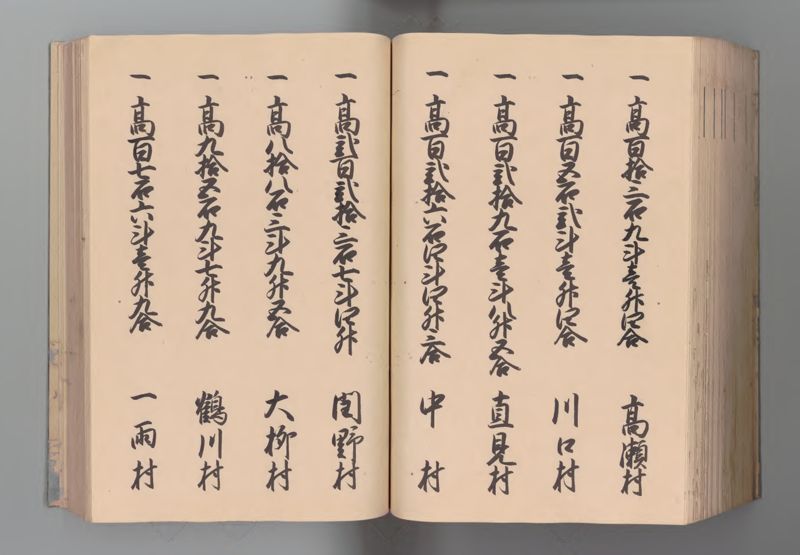 一 高百拾三石九斗壱升四合 高瀬村
一 高百五石弐斗壱升四合 川口村
一 高百弐拾九石壱斗八升五合 直見村
一 高百弐拾六石四斗四升二合 中村
一 高弐百弐拾三石七斗四升 閏野村
一 高八拾八石三斗九升五合 大柳村
一 高九拾五石九斗七升九合 鶴川村
一 高百七石六斗壱升九合 一雨村